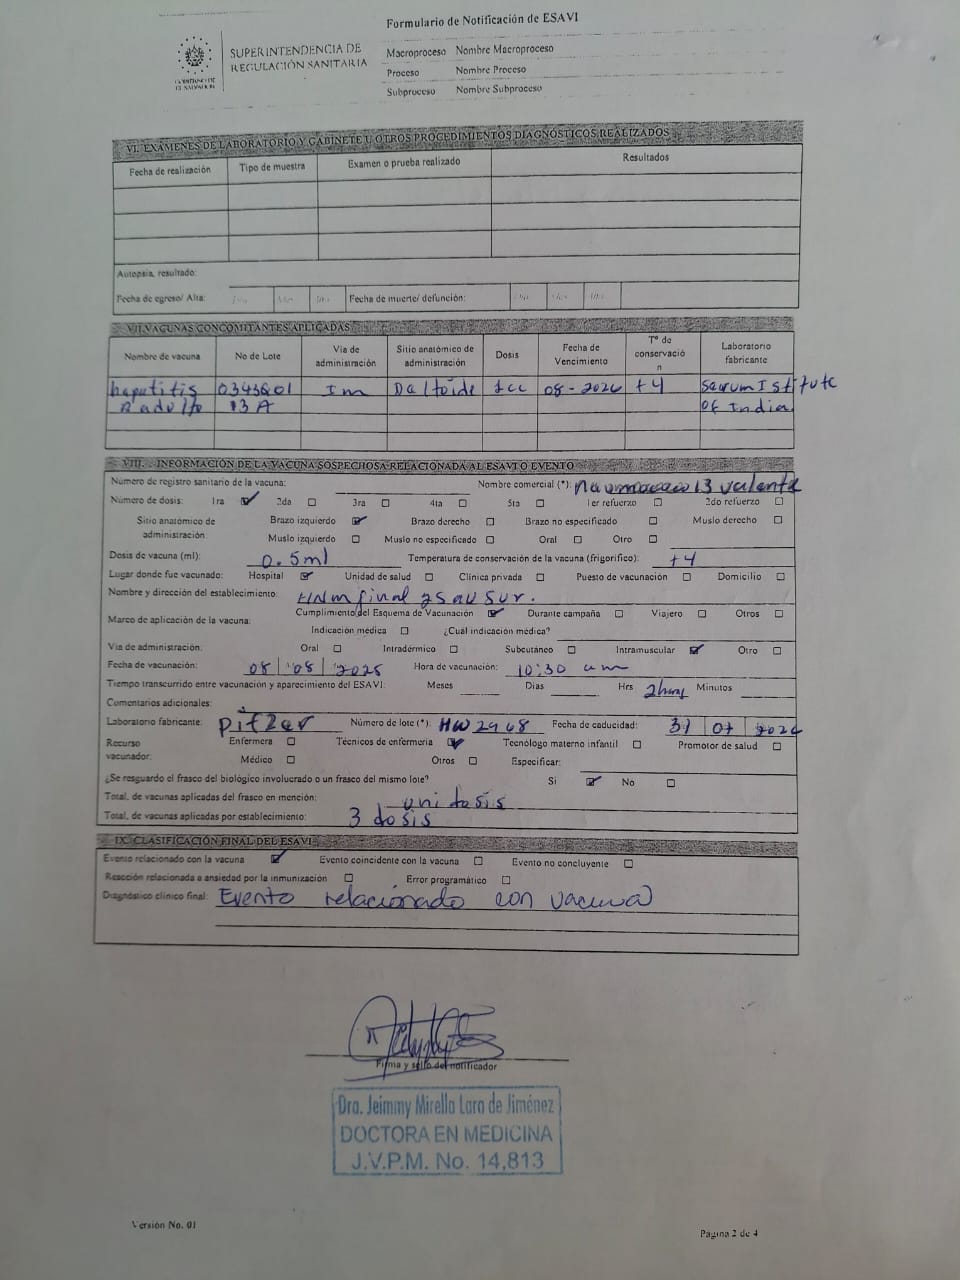 Formulario de Notificación de ESAVI
SUPERINTENDENCIA DE
REGULACIÓN SANITARIA
GOBIERNO DE
EL SALVADOR
Macroproceso Nombre Macroproceso
Proceso Nombre Proceso
Subproceso Nombre Subproceso
VI. EXÁMENES DE LABORATORIO Y GABINETE U OTROS PROCEDIMIENTOS DIAGNÓSTICOS REALIZADOS
Fecha de realización Tipo de muestra Examen o prueba realizado Resultados
Autopsia, resultado:
Fecha de egreso/ Alta: Fecha de muerte/ defunción:
VII. VACUNAS CONCOMITANTES APLICADAS
Nombre de vacuna No de Lote Via de administración Sitio anatómico de administración Dosis Fecha de Vencimiento Tº de conservació n Laboratorio fabricante
hepatitis 0343G01 Im Deltoide 1cc 08-2026 +4 Serum Istitute
adulto 13 A of India
VIII. INFORMACIÓN DE LA VACUNA SOSPECHOSA RELACIONADA AL ESAVI O EVENTO
Número de registro sanitario de la vacuna: Nombre comercial (*): 13 valente
Número de dosis: 1ra ☑ 2da ☐ 3ra ☐ 4ta ☐ 5ta ☐ 1er refuerzo ☐ 2do refuerzo ☐
Sitio anatómico de administración: Brazo izquierdo ☑ Brazo derecho ☐ Brazo no especificado ☐ Muslo derecho ☐
Muslo izquierdo ☐ Muslo no especificado ☐ Oral ☐ Otro ☐
Dosis de vacuna (ml): 0.5ml Temperatura de conservación de la vacuna (frigorífico): +4
Lugar donde fue vacunado: Hospital ☑ Unidad de salud ☐ Clínica privada ☐ Puesto de vacunación ☐ Domicilio ☐
Nombre y dirección del establecimiento: HNM final 25 av sur.
Marco de aplicación de la vacuna: Cumplimiento del Esquema de Vacunación ☑ Durante campaña ☐ Viajero ☐ Otros ☐
Indicación médica ☐ ¿Cuál indicación médica?
Via de administración: Oral ☐ Intradérmico ☐ Subcutáneo ☐ Intramuscular ☑ Otro ☐
Fecha de vacunación: 08 | 08 | 2025 Hora de vacunación: 10:30 am
Tiempo transcurrido entre vacunación y aparecimiento del ESAVI: Meses Dias Hrs 2horas Minutos
Comentarios adicionales:
Laboratorio fabricante: pifzer Número de lote (*): HW2968 Fecha de caducidad: 31 | 07 | 2026
Recurso vacunador: Enfermera ☐ Técnicos de enfermería ☑ Tecnólogo materno infantil ☐ Promotor de salud ☐
Médico ☐ Otros ☐ Especificar:
¿Se resguardo el frasco del biológico involucrado o un frasco del mismo lote? Si ☑ No ☐
Total, de vacunas aplicadas del frasco en mención: unidosis
Total, de vacunas aplicadas por establecimiento: 3 dosis
IX. CLASIFICACIÓN FINAL DEL ESAVI
Evento relacionado con la vacuna ☑ Evento coincidente con la vacuna ☐ Evento no concluyente ☐
Reacción relacionada a ansiedad por la inmunización ☐ Error programático ☐
Diagnóstico clínico final: Evento relacionado con vacuna
Firma y sello del notificador
Dra. Jeimmy Mirella Lara de Jiménez
DOCTORA EN MEDICINA
J.V.P.M. No. 14,813
Versión No. 01
Página 2 de 4